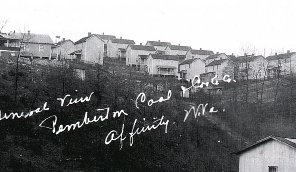 General View
Pemberton Coal & Coke Co.
Affinity, W.Va.